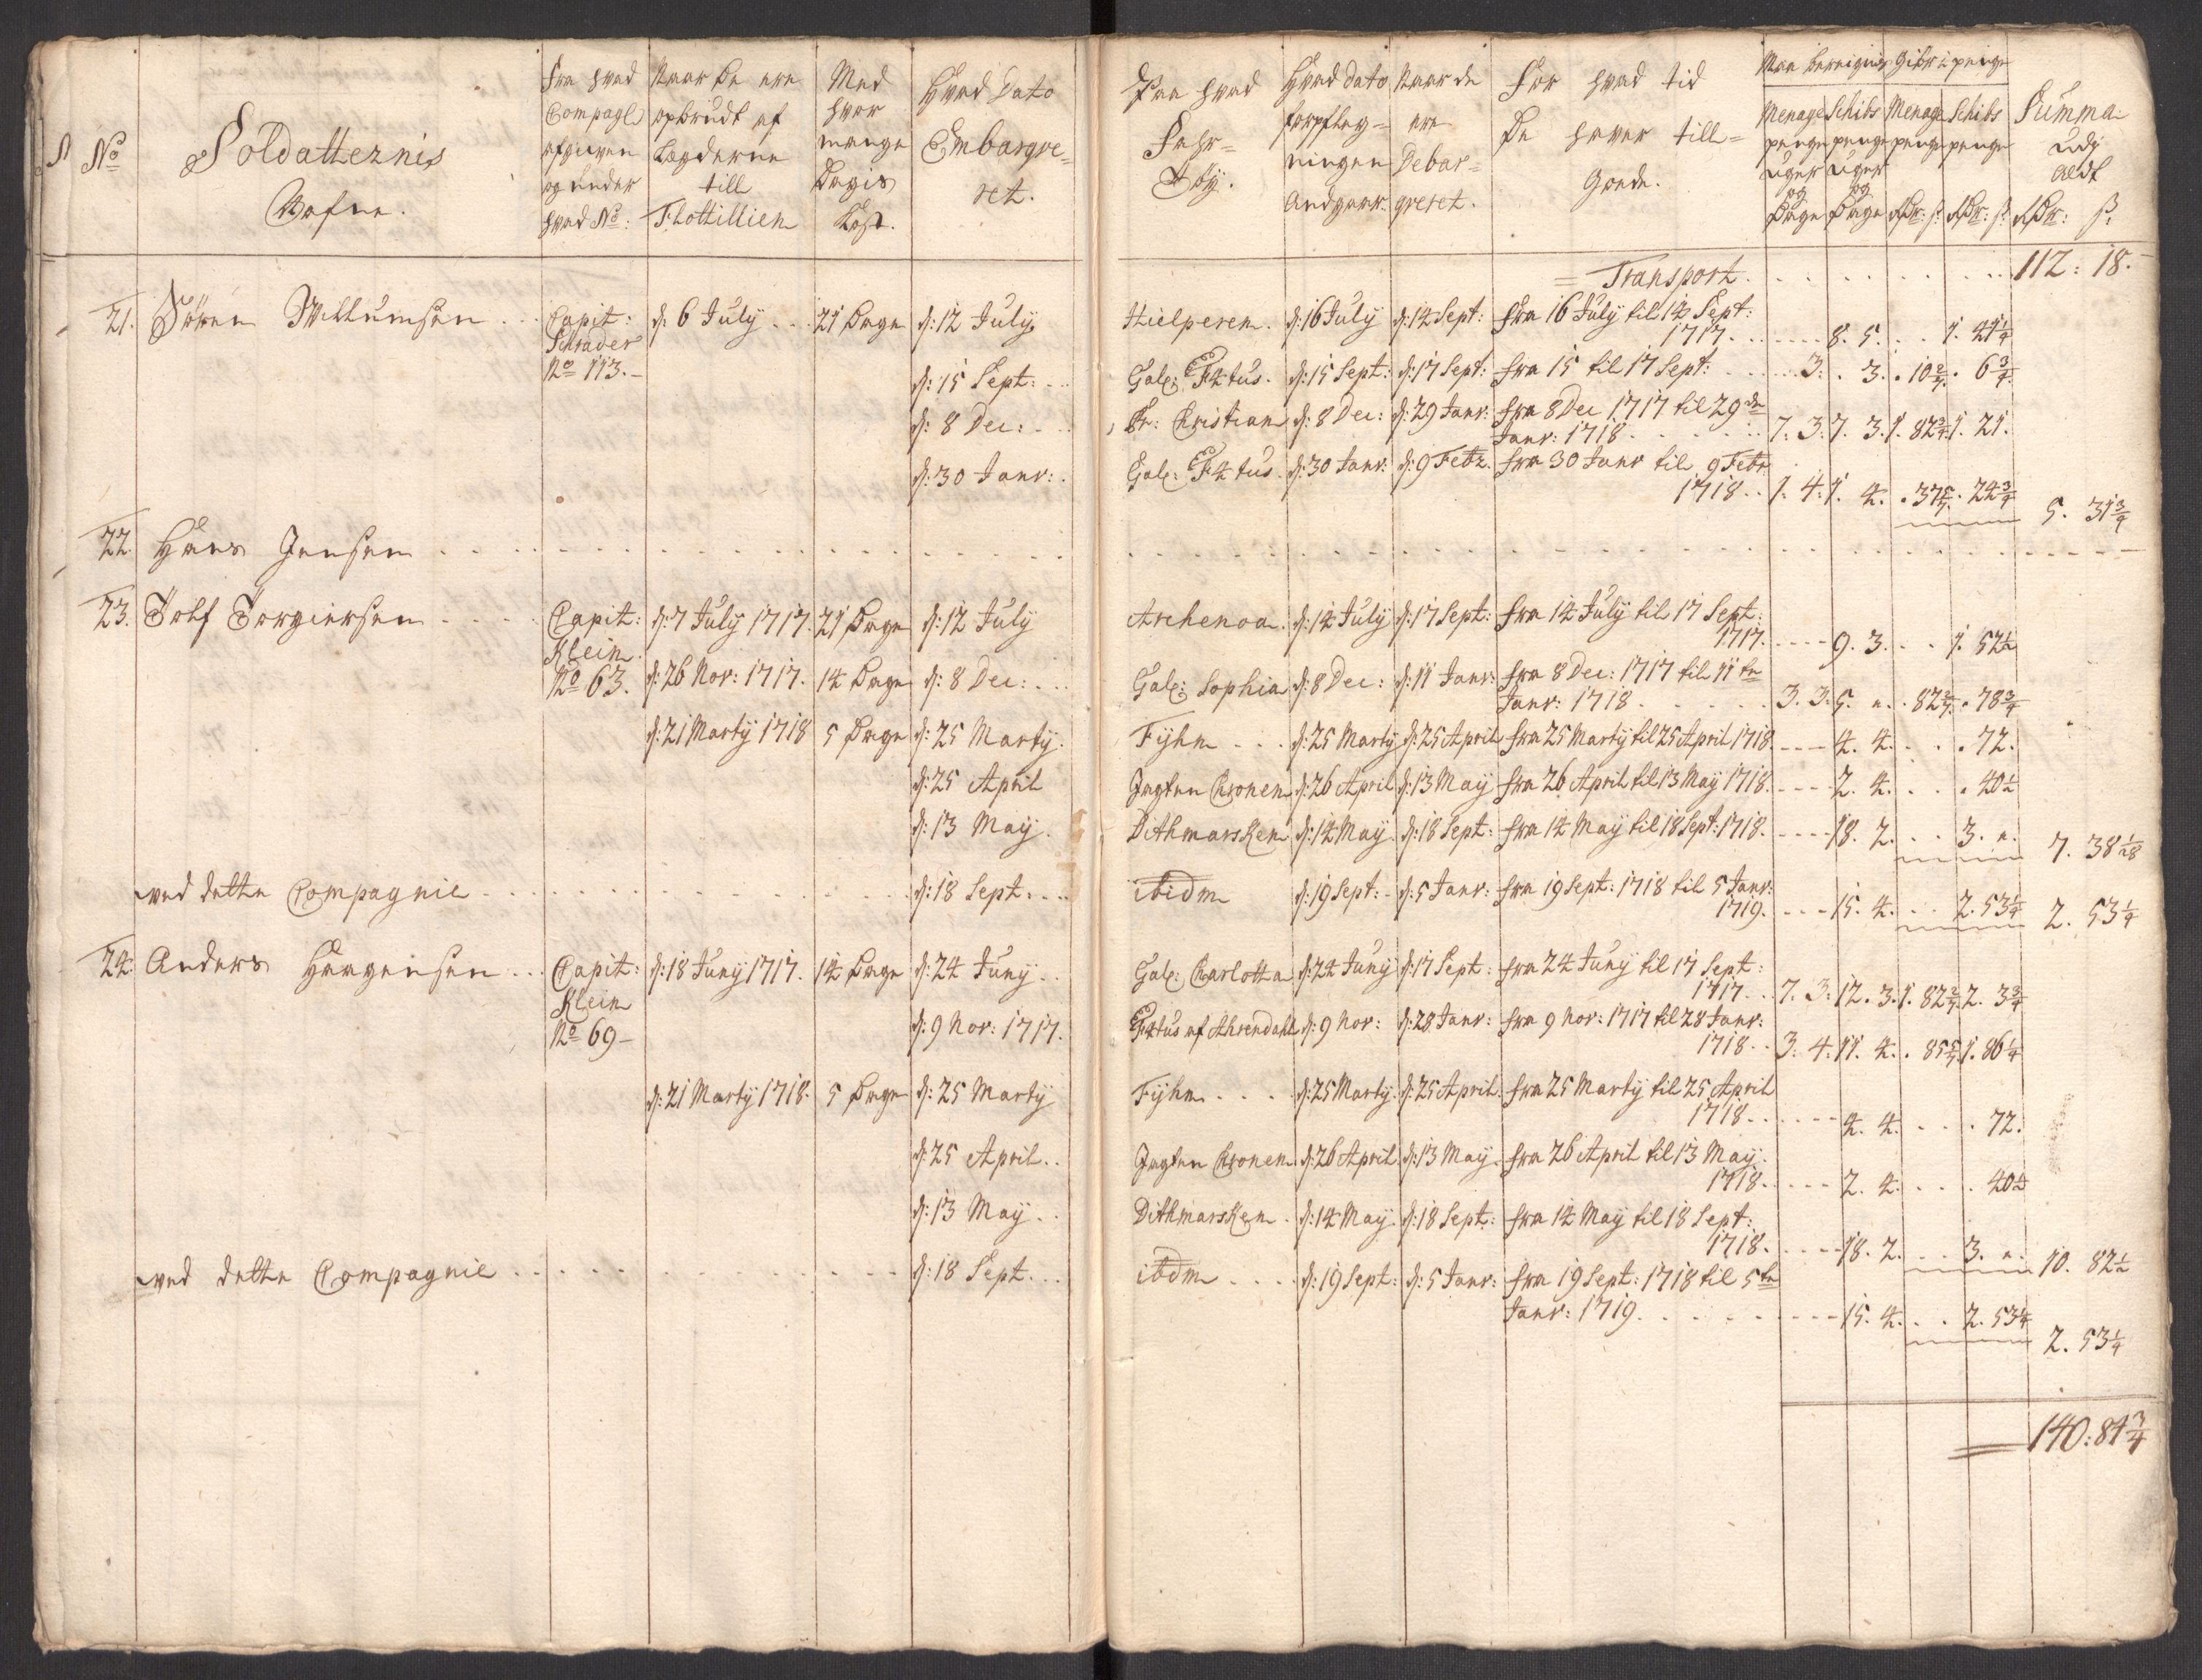 No
Soldatternis
Nafne.
Fra hvad
Compagl
afgiven
og under
hvad No:
Naar De ere
opbrudt af
Lægderne
till
Flottillien
Med
hvor
mange
Dagis
Kost.
Hvad Dato
Embarqve=
ret.
Paa hvad
Fahr=
Tøy.
Hvad Dato
forpfley=
ningen
Naar de
ere
Debar=
qveret.
For hvad tid
De haver till=
Gode.
Giør i penge
Menage penge Uger og Dage
Schibs penge Uger og Dage
Menage penge Rdr: ß:
Schibs penge Rdr: ß:
Summa
Udj
aldt
Rdr: ß:
= Transport. . . . 112: 18.
21. Sören Willumsen . . Capit: Schrader No 113. d: 6 July . . 21 Dage d: 12 July
Hielperen. d: 16 July d: 14 Sept: fra 16 July til 14 Sept: 1717. . . . 8. 5. . . 1. 41 1/4
d: 15 Sept: . .
Gal: Fr: 4tus. d: 15 Sept: d: 17 Sept: fra 15 til 17 Sept: . . . 3. . 3. . 10 2/7. . 6 3/4
d: 8 Dec: . .
Pr: Christian d: 8 Dec: d: 29 Janr: fra 8 Dec 1717 til 29de
Janr: 1718 . . . 7. 3. 7. 3. 1. 82 2/7. 1. 21.
d: 30 Janr: .
Gal: Fr: 4tus. d: 30 Janr: d: 9 Febr. fra 30 Janr til 9 Febr
1718. . 1. 4. 1. 4. . 37 5/7. . 24 3/4 5. 31 3/4
22. Hans Jensen . . . .
23. Tolf Torgiersen . . . Capit: Klein No 63. d: 7 July 1717. 21 Dage d: 12 July
Archenoa. d: 14 July d: 17 Sept: fra 14 July til 17 Sept:
1717. . . . 9. 3. . . 1. 52 1/2
d: 26 Nov: 1717. 14 Dage d: 8 Dec: . .
Gal: Sophia d: 8 Dec: d: 11 Janr: fra 8 Dec: 1717 til 11te
Janr: 1718 . . . 3. 3. 5. ". . 82 2/7. . 78 3/4
d: 21 Marty 1718 5 Dage d: 25 Marty.
Fyhn . . . d: 25 Marty d: 25 April fra 25 Marty til 25 April 1718. . . 4. 4. . . . 72.
d: 25 April
Jagten Cronen d: 26 April d: 13 May fra 26 April til 13 May 1718. . . 2. 4. . . . 40 1/2
d: 13 May.
Dithmarsken d: 14 May. d: 18 Sept: fra 14 May til 18 Sept: 1718. . . 18. 2. . . 3. ". 7. 38
ved dette Compagnie . . . . d: 18 Sept: . .
ibidm d: 19 Sept: d: 5 Janr: fra 19 Sept: 1718 til 5 Janr:
1719. . . 15. 4. . . 2. 53 1/4 2. 53 1/4
24. Anders Haagensen . . Capit: Klein No 69 d: 18 Juny 1717. 14 Dage d: 24 Juny . .
Gal: Carlotta d: 24 Juny d: 17 Sept: fra 24 Juny til 17 Sept:
1717. . 7. 3. 12. 3. 1. 82 2/7. 2. 3 3/4
d: 9 Nov: 1717.
Fr: 4tus af Ahrendahl d: 9 Nov: d: 28 Janr: fra 9 Nov: 1717 til 28 Janr:
1718. . 3. 4. 11. 4. . 85 5/7. 1. 86 1/4
d: 21 Marty 1718. 5 Dage d: 25 Marty
Fyhn . . . d: 25 Marty. d: 25 April. fra 25 Marty til 25 April
1718. . . . 4. 4. . . . 72.
d: 25 April. .
Jagten Cronen d: 26 April. d: 13 May. fra 26 April til 13 May.
1718. . . . 2. 4. . . . 40 1/2
d: 13 May . .
Dithmarsken . d: 14 May. d: 18 Sept: fra 14 May til 18 Sept:
1718. . . . 18. 2. . . 3. ". 10. 82 1/2
ved dette Compagnie . . . . d: 18 Sept. . .
ibdm . . . . d: 19 Sept: d: 5 Janr: fra 19 Sept: 1718 til 5te
Janr: 1719 . . . . 15. 4. . . 2. 53 1/4 2. 53 1/4
140: 84 3/4